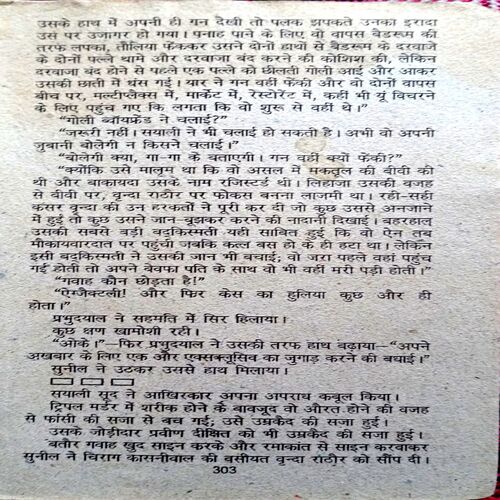 उसके हाथ में अपनी ही गन देखी तो पलक झपकते उनका इरादा
उस पर उजागर हो गया। पनाह पाने के लिए वो वापस बैडरूम की
तरफ लपका, तौलिया फेंककर उसने दोनों हाथों से बैडरूम के दरवाजे
के दोनों पल्ले थामे और दरवाजा बंद करने की कोशिश की, लेकिन
दरवाजा बंद होने से पहले एक पल्ले को छीलती गोली आई और आकर
उसकी छाती में धंस गई। यार ने गन वहीं फेंकी और वो दोनों वापस
बीच पर, मल्टीप्लैक्स में, मार्केट में, रेस्टोरेंट में, कहीं भी यूं विचरने
के लिए पहुंच गए कि लगता कि वो शुरू से वहीं थे।"
"गोली ब्वॉयफ्रेंड ने चलाई?"
"जरूरी नहीं। सयाली ने भी चलाई हो सकती है। अभी वो अपनी
जुबानी बोलेगी न किसने चलाई।"
"बोलेगी क्या, गा-गा के बताएगी। गन वहीं क्यों फेंकी?"
"क्योंकि उसे मालूम था कि वो असल में मकतूल की बीवी की
थी और बाकायदा उसके नाम रजिस्टर्ड थी। लिहाजा उसकी वजह
से बीवी पर, वृन्दा राठौर पर फोकस बनना लाजमी था। रही-सही
कसर वृन्दा की उन हरकतों ने पूरी कर दी जो कुछ उससे अनजाने
में हुईं तो कुछ उसने जान-बूझकर करने की नादानी दिखाई। बहरहाल
उसकी सबसे बड़ी बदकिस्मती यही साबित हुई कि वो ऐन तब
मौकायवारदात पर पहुंची जबकि कत्ल बस हो के ही हटा था। लेकिन
इसी बदकिस्मती ने उसकी जान भी बचाई; वो जरा पहले वहां पहुंच
गई होती तो अपने बेवफा पति के साथ वो भी वहीं मरी पड़ी होती।"
"गवाह कौन छोड़ता है!"
"ऐग्जैक्टली! और फिर केस का हुलिया कुछ और ही
होता।"
प्रभुदयाल ने सहमति में सिर हिलाया।
कुछ क्षण खामोशी रही।
"ओके।"—फिर प्रभुदयाल ने उसकी तरफ हाथ बढ़ाया—"अपने
अखबार के लिए एक और एक्सक्लूसिव का जुगाड़ करने की बधाई।"
सुनील ने उठकर उससे हाथ मिलाया।
सयाली सूद ने आखिरकार अपना अपराध कबूल किया।
ट्रिपल मर्डर में शरीक होने के बावजूद वो औरत होने की वजह
से फांसी की सजा से बच गई; उसे उम्रकैद की सजा हुई।
उसके जोड़ीदार प्रवीण दीक्षित को भी उम्रकैद की सजा हुई।
बतौर गवाह खुद साइन करके और रमाकांत से साइन करवाकर
सुनील ने चिराग कासनीवाल की वसीयत वृन्दा राठौर को सौंप दी।
303